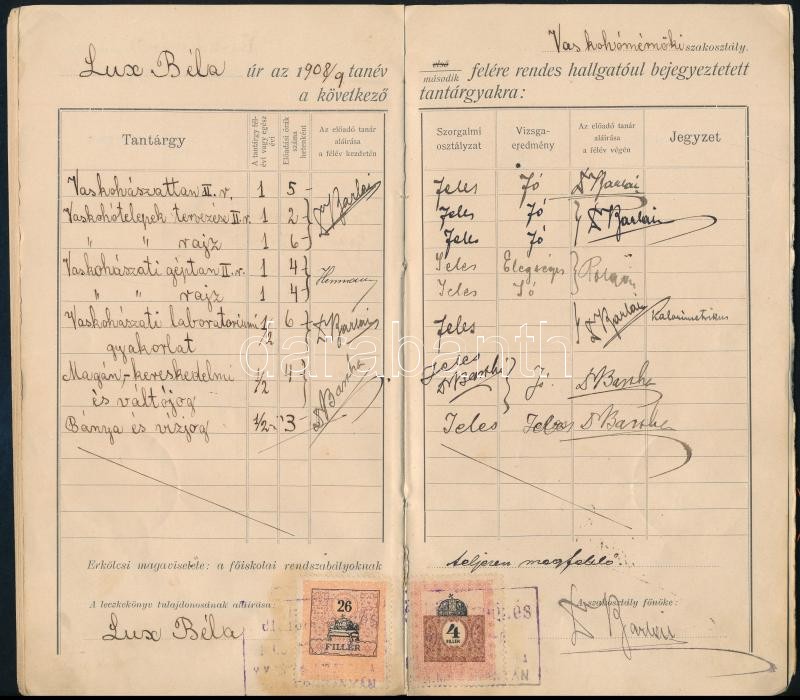 Vaskohómérnöki szakosztály.
Lux Béla úr az 1908/9 tanév első második felére rendes hallgatóul bejegyeztetett
a következő tantárgyakra:
Tantárgy | A tantárgy félévi vagy egész évi | Előadási órák száma hetenként | Az előadó tanár aláirása a félév kezdetén | Szorgalmi osztályzat | Vizsga-eredmény | Az előadó tanár aláirása a félév végén | Jegyzet
Vaskohászattan II. r. 1 5 Dr Barlai Jeles Jó Dr Barlai
Vaskohótelepek tervezése II. r. 1 2 Jeles Jó Dr Barlai
" " rajz 1 6 Jeles Jó
Vaskohászati géptan II. r. 1 4 Herrmann Jeles Elégséges
" " rajz 1 4 Jeles Jó
Vaskohászati laboratoriumi 1/2 6 Dr Barlai Jeles Dr Barlai Kalorimetrikus
gyakorlat
Magán-, kereskedelmi 1/2 4 Jeles Jó Dr Bartha
és váltójog Dr Bartha
Bánya és vizjog 1/2 3 Dr Bartha Jeles Jeles Dr Bartha
darabanth
Erkölcsi magaviselete: a főiskolai rendszabályoknak teljesen megfelelő.
A leczkekönyv tulajdonosának aláirása: A szakosztály főnöke:
Lux Béla Dr Barlai
26
FILLÉR
4
FILLÉR